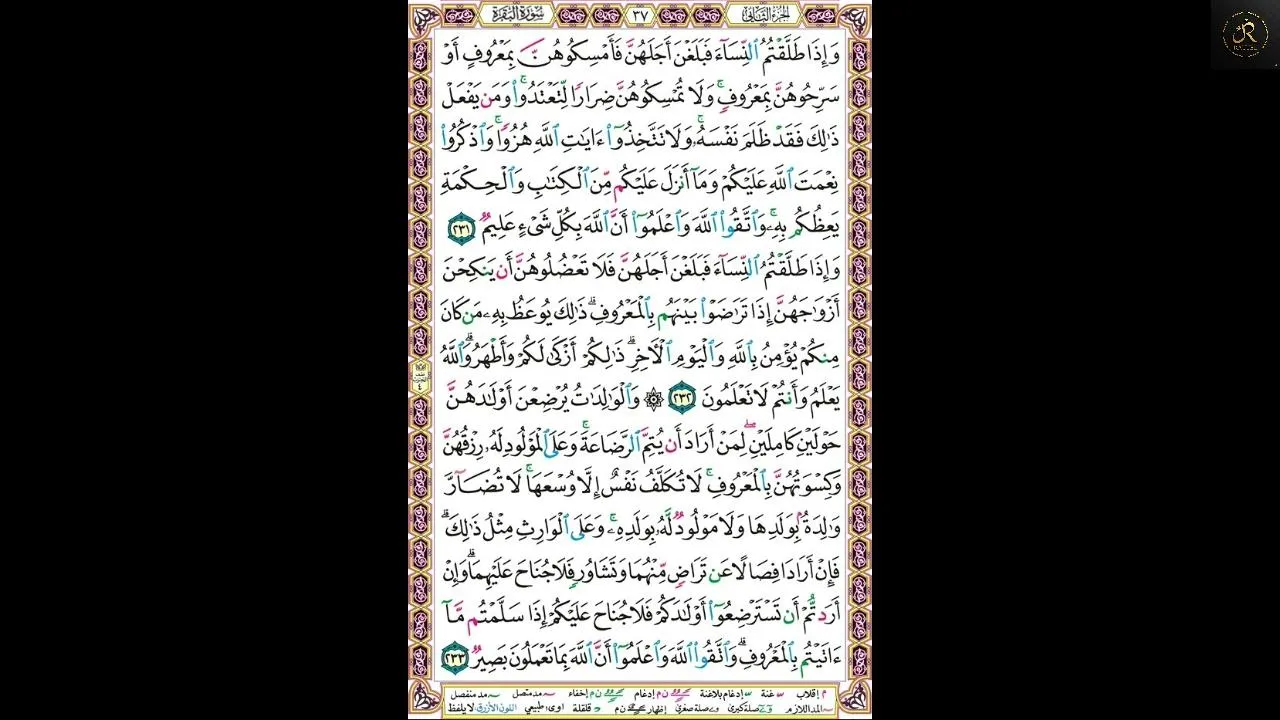 الجزء الثاني ٣٧ سورة البقرة
وَإِذَا طَلَّقْتُمُ ٱلنِّسَآءَ فَبَلَغْنَ أَجَلَهُنَّ فَأَمْسِكُوهُنَّ بِمَعْرُوفٍ أَوْ
سَرِّحُوهُنَّ بِمَعْرُوفٍۚ وَلَا تُمْسِكُوهُنَّ ضِرَارًا لِّتَعْتَدُوا۟ۚ وَمَن يَفْعَلْ
ذَٰلِكَ فَقَدْ ظَلَمَ نَفْسَهُۥۚ وَلَا تَتَّخِذُوٓا۟ ءَايَٰتِ ٱللَّهِ هُزُوًاۚ وَٱذْكُرُوا۟
نِعْمَتَ ٱللَّهِ عَلَيْكُمْ وَمَآ أَنزَلَ عَلَيْكُم مِّنَ ٱلْكِتَٰبِ وَٱلْحِكْمَةِ
يَعِظُكُم بِهِۦۚ وَٱتَّقُوا۟ ٱللَّهَ وَٱعْلَمُوٓا۟ أَنَّ ٱللَّهَ بِكُلِّ شَىْءٍ عَلِيمٌ ٢٣١
وَإِذَا طَلَّقْتُمُ ٱلنِّسَآءَ فَبَلَغْنَ أَجَلَهُنَّ فَلَا تَعْضُلُوهُنَّ أَن يَنكِحْنَ
أَزْوَٰجَهُنَّ إِذَا تَرَٰضَوْا۟ بَيْنَهُم بِٱلْمَعْرُوفِۗ ذَٰلِكَ يُوعَظُ بِهِۦ مَن كَانَ
مِنكُمْ يُؤْمِنُ بِٱللَّهِ وَٱلْيَوْمِ ٱلْءَاخِرِۗ ذَٰلِكُمْ أَزْكَىٰ لَكُمْ وَأَطْهَرُۗ وَٱللَّهُ
يَعْلَمُ وَأَنتُمْ لَا تَعْلَمُونَ ٢٣٢ ۞ وَٱلْوَٰلِدَٰتُ يُرْضِعْنَ أَوْلَٰدَهُنَّ
حَوْلَيْنِ كَامِلَيْنِۖ لِمَنْ أَرَادَ أَن يُتِمَّ ٱلرَّضَاعَةَۚ وَعَلَى ٱلْمَوْلُودِ لَهُۥ رِزْقُهُنَّ
وَكِسْوَتُهُنَّ بِٱلْمَعْرُوفِۚ لَا تُكَلَّفُ نَفْسٌ إِلَّا وُسْعَهَاۚ لَا تُضَآرَّ
وَٰلِدَةٌۢ بِوَلَدِهَا وَلَا مَوْلُودٌ لَّهُۥ بِوَلَدِهِۦۚ وَعَلَى ٱلْوَارِثِ مِثْلُ ذَٰلِكَۗ
فَإِنْ أَرَادَا فِصَالًا عَن تَرَاضٍ مِّنْهُمَا وَتَشَاوُرٍ فَلَا جُنَاحَ عَلَيْهِمَاۗ وَإِنْ
أَرَدتُّمْ أَن تَسْتَرْضِعُوٓا۟ أَوْلَٰدَكُمْ فَلَا جُنَاحَ عَلَيْكُمْ إِذَا سَلَّمْتُم مَّآ
ءَاتَيْتُم بِٱلْمَعْرُوفِۗ وَٱتَّقُوا۟ ٱللَّهَ وَٱعْلَمُوٓا۟ أَنَّ ٱللَّهَ بِمَا تَعْمَلُونَ بَصِيرٌ ٢٣٣
م إقلاب غنة إدغام بلاغنة ن م إدغام ن م إخفاء مد متصل مد منفصل
المد اللازم صلة كبرى صلة صغرى إظهار ن م قلقلة اوى: طبيعي اللون الأزرق لا يلفظ